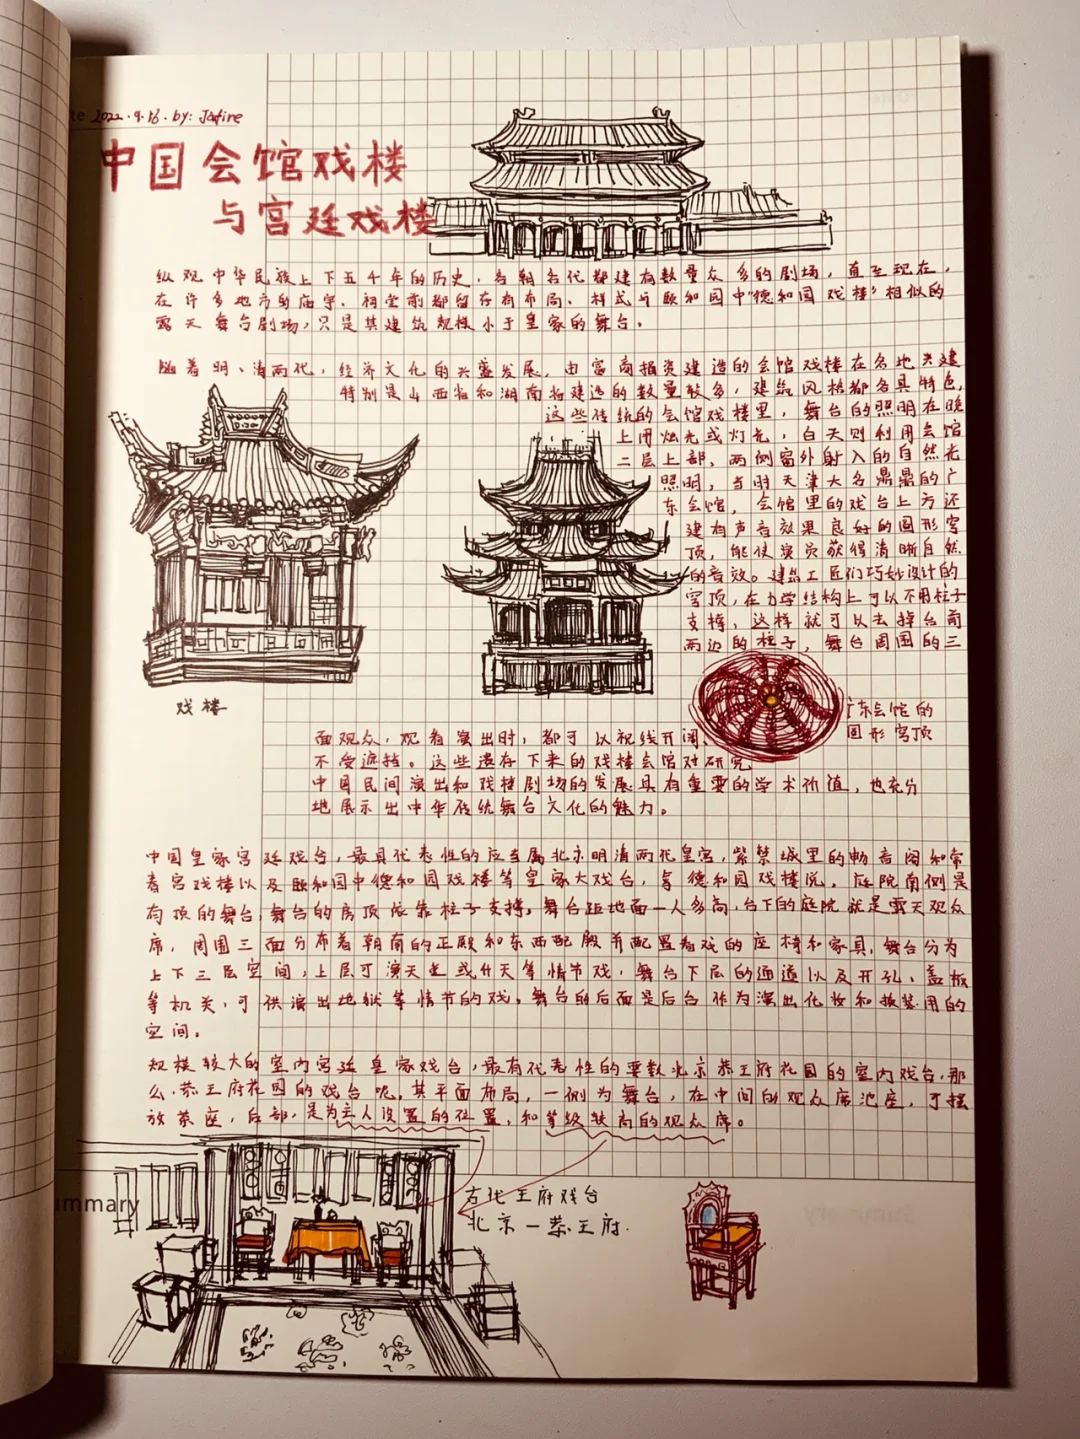 2022.9.16. by: Jafire
中国会馆戏楼
与宫廷戏楼
纵观中华民族上下五千年的历史，每朝各代都建有数量众多的剧场，直至现在，
在许多地方的庙宇、祠堂前都留存有布局、样式与颐和园中"德和园戏楼"相似的
露天舞台剧场，只是其建筑规模小于皇家的舞台。
随着明、清两代，经济文化的兴盛发展，由富商投资建造的会馆戏楼在各地兴建
特别是山西省和湖南省建造的数量较多，建筑风格都各具特色，
这些传统的会馆戏楼里，舞台的照明在晚
上用烛光或灯光，白天则利用会馆
二层上部，两侧窗外射入的自然光
照明，当时天津大名鼎鼎的广
东会馆，会馆里的戏台上方还
建有声音效果良好的圆形穹
顶，能使演员获得清晰自然
的音效。建筑工匠们巧妙设计的
穹顶，在力学结构上可以不用柱子
支撑，这样就可以去掉台前
两边的柱子，舞台周围的三
戏楼
广东会馆的
圆形穹顶
面观众，观看演出时，都可以视线开阔、
不受遮挡。这些遗存下来的戏楼会馆对研究
中国民间演出和戏楼剧场的发展具有重要的学术价值，也充分
地展示出中华传统舞台文化的魅力。
中国皇家宫廷戏台，最具代表性的应当属北京明清两代皇宫，紫禁城里的畅音阁和宁
寿宫戏楼以及颐和园中德和园戏楼等皇家大戏台，拿德和园戏楼说，庭院南侧是
有顶的舞台，舞台的房顶依靠柱子支撑，舞台距地面一人多高，台下的庭院就是露天观众
席，周围三面分布着朝南的正殿和东西配殿并配置看戏的座椅和家具，舞台分为
上下三层空间，上层可演天堂或升天等情节戏，舞台下层的通道以及开孔、盖板
等机关，可供演出地狱等情节的戏。舞台的后面是后台作为演出化妆和换装用的
空间。
规模较大的室内宫廷皇家戏台，最有代表性的要数北京恭王府花园的室内戏台，那
么，恭王府花园的戏台呢，其平面布局，一侧为舞台，在中间的观众席池座，可摆
放茶座，后部，是为主人设置的位置，和等级较高的观众席。
ummary
古代王府戏台
北京一恭王府.